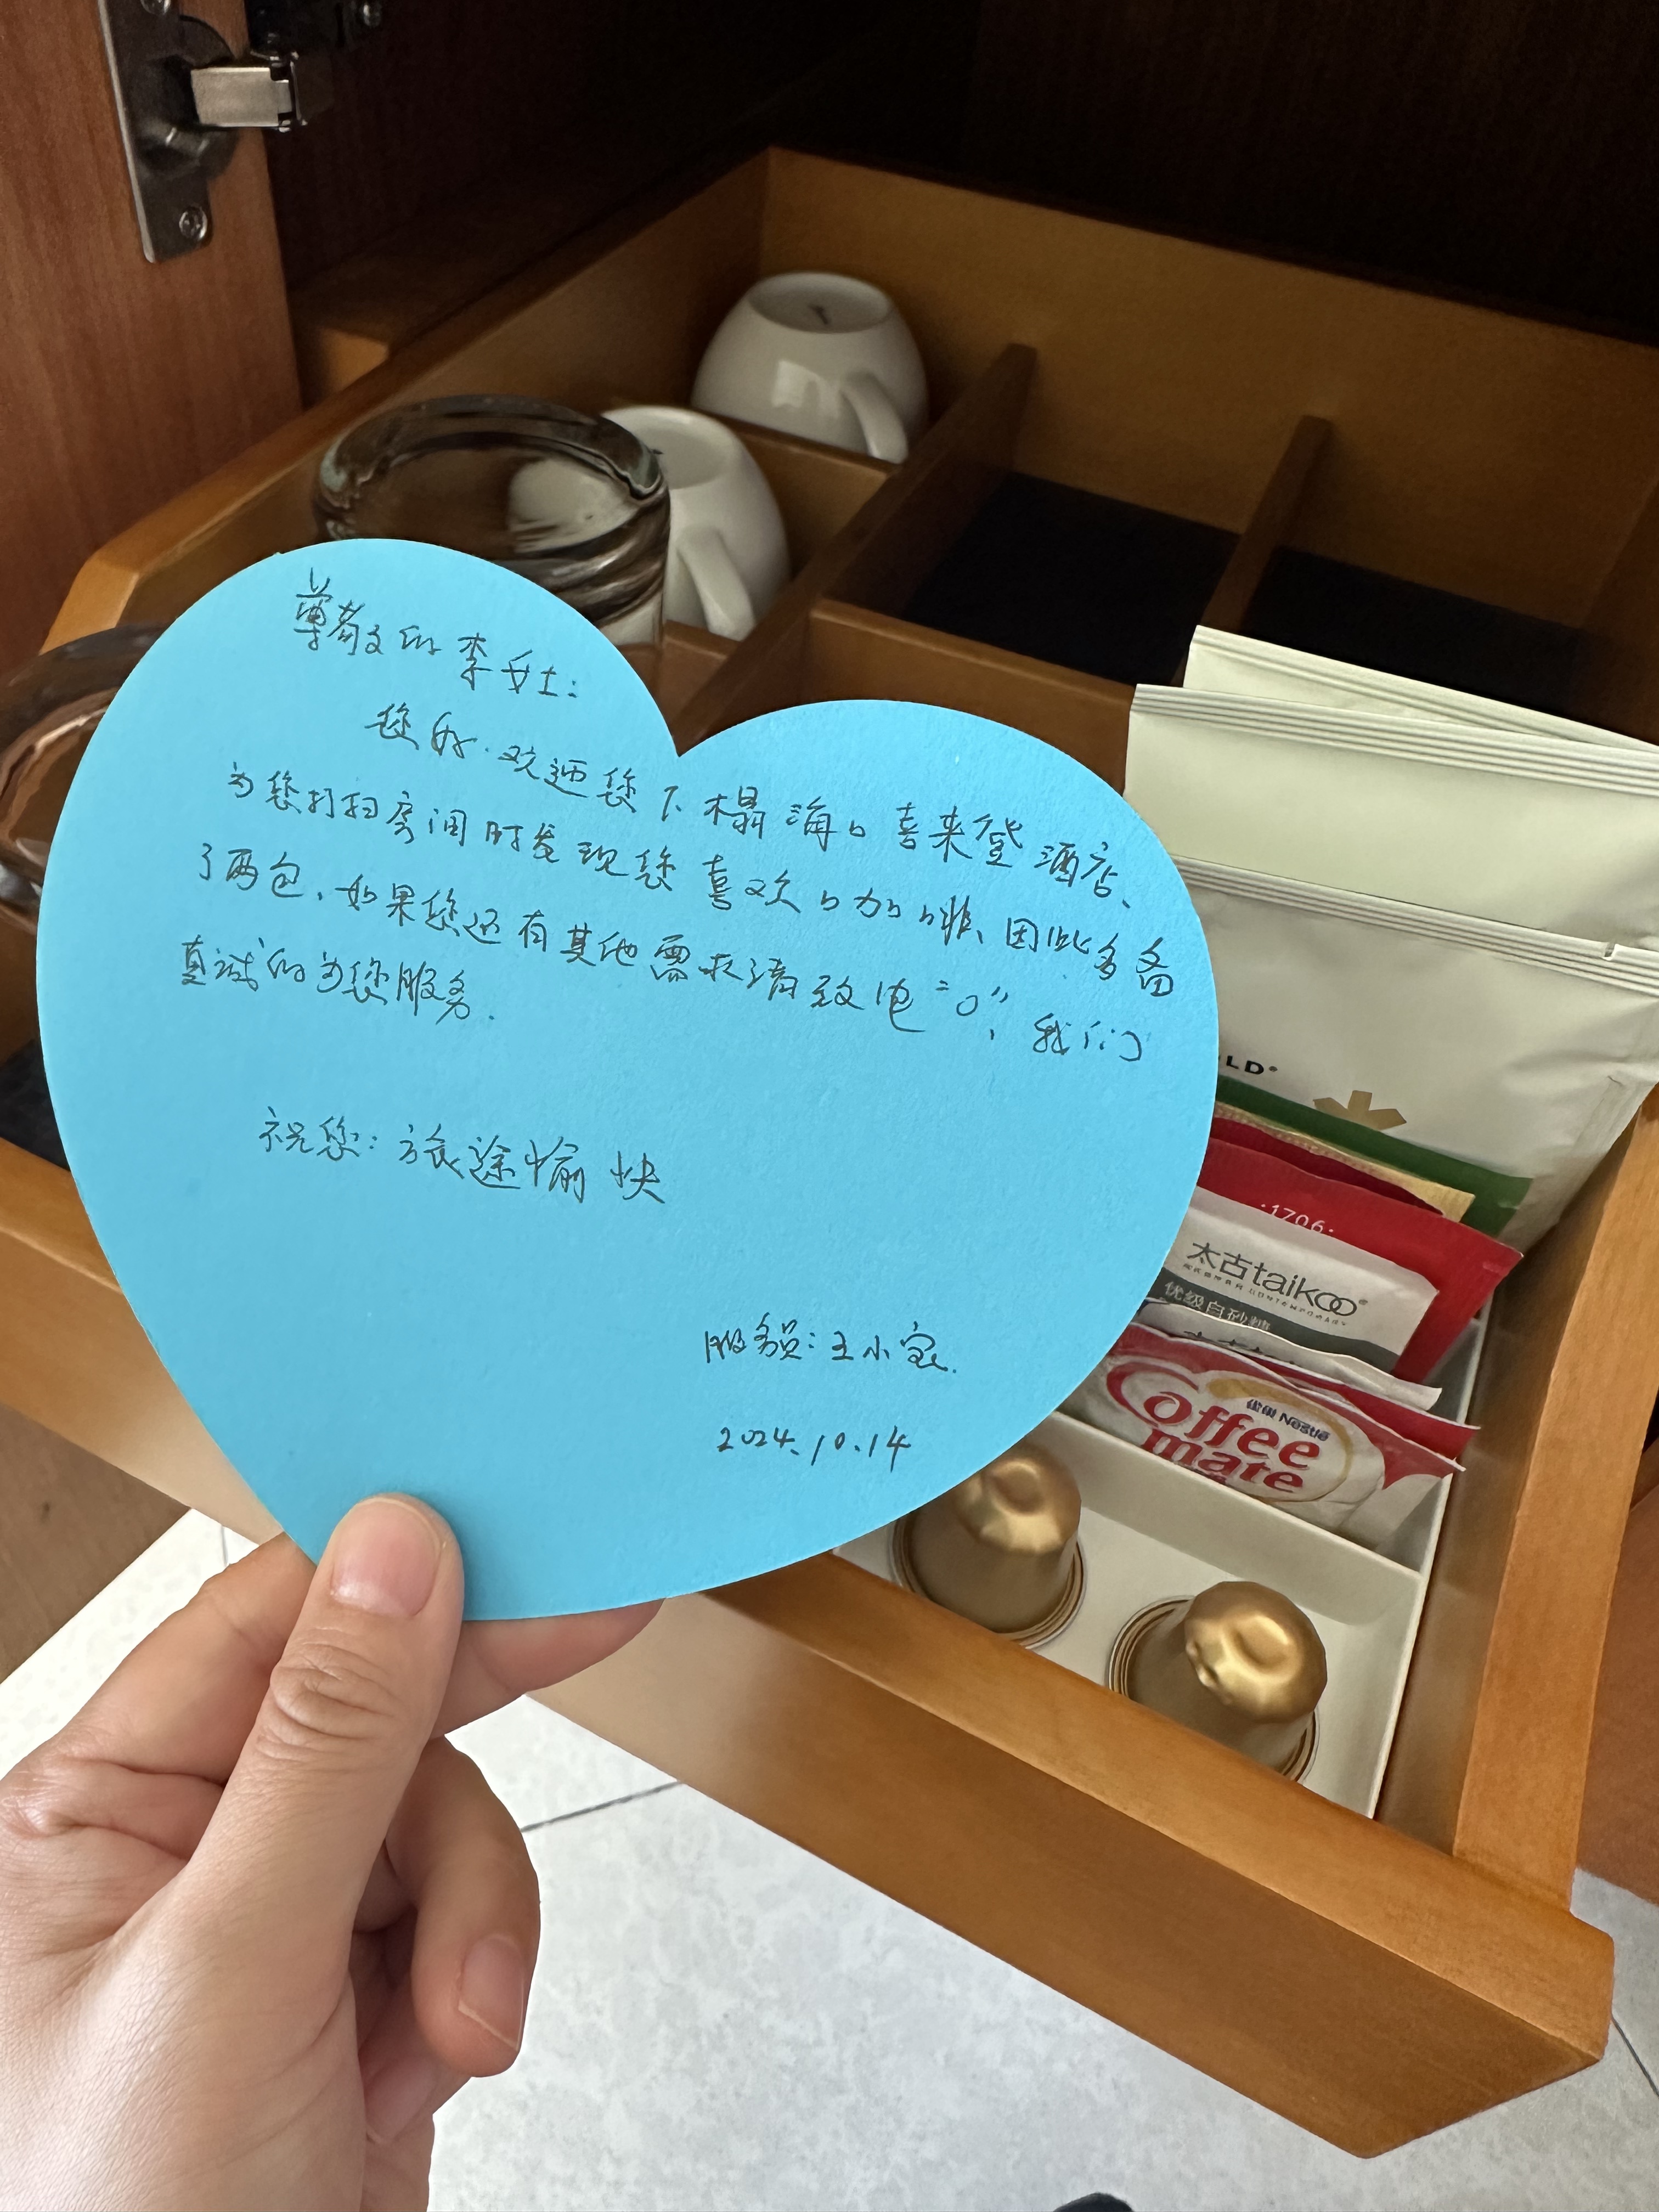 尊敬的李女士：
您好.欢迎您下榻海口喜来登酒店、
为您打扫房间时发现您喜欢咖啡、因此多备
了两包.如果您还有其他需求请致电"0"，我们
真诚的为您服务.
祝您：旅途愉快
服务员：王小
2024.10.14
LD
·1706·
太古taikoo
优级白砂糖
雀巢 Nestlé
Coffee
mate